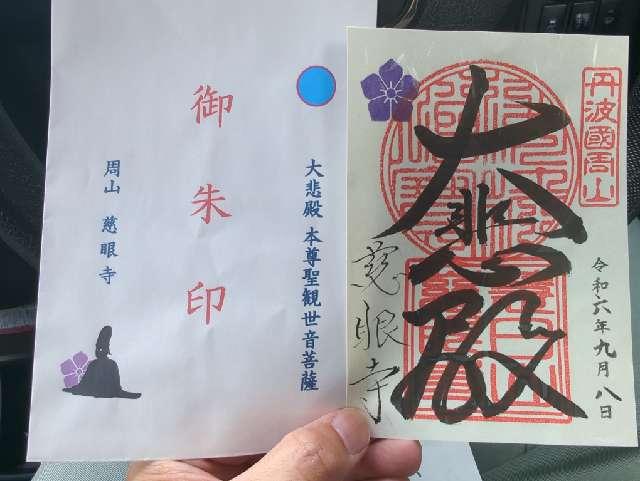 大悲殿 本尊聖観世音菩薩
御朱印
周山 慈眼寺
丹波國周山
大悲殿
慈眼寺
令和六年九月八日